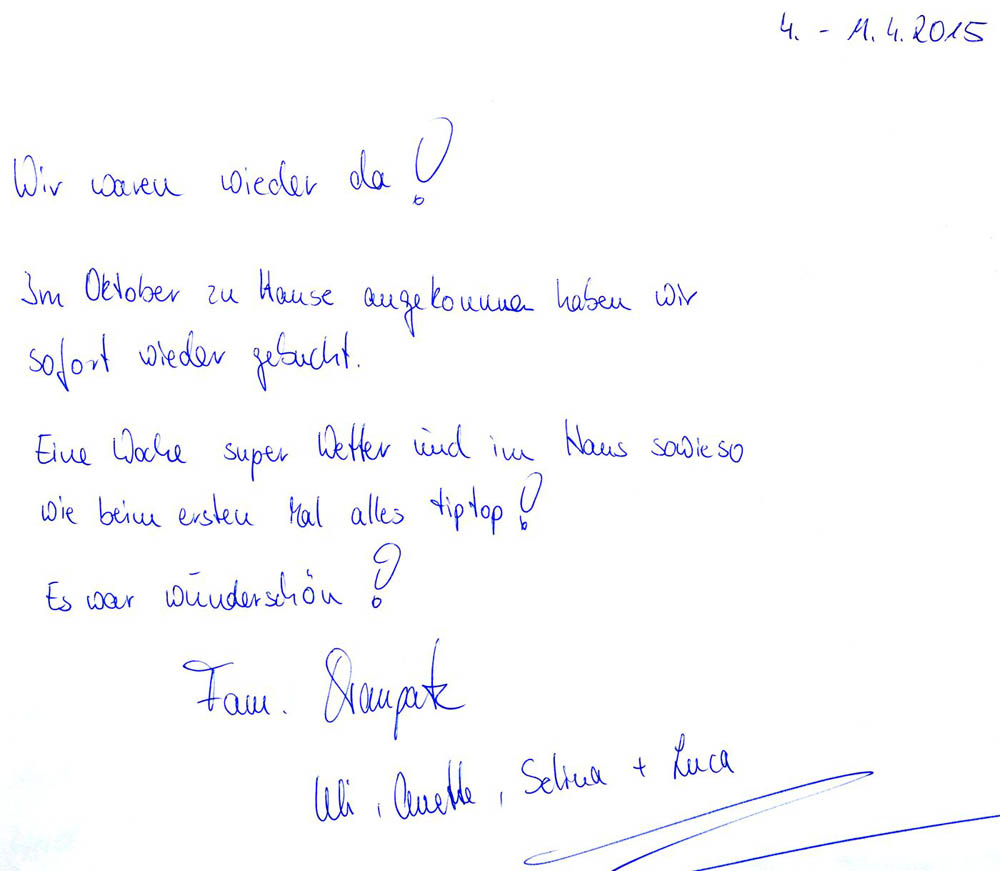 4. - 11.4.2015
Wir waren wieder da!
Im Oktober zu Hause angekommen haben wir
sofort wieder gebucht.
Eine Woche super Wetter und im Haus sowieso
wie beim ersten Mal alles tiptop!
Es war wunderschön!
Fam.
Uli, Anette, Selina + Luca